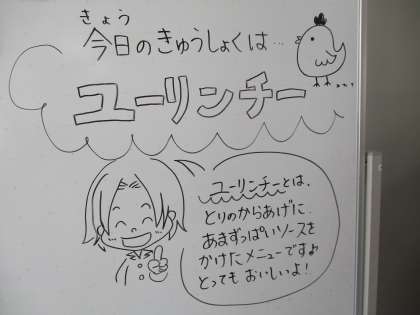 きょう
今日のきゅうしょくは…
ユーリンチー
ユーリンチーとは、
とりのからあげに
あまずっぱいソースを
かけたメニューですよ
とっても おいしいよ!